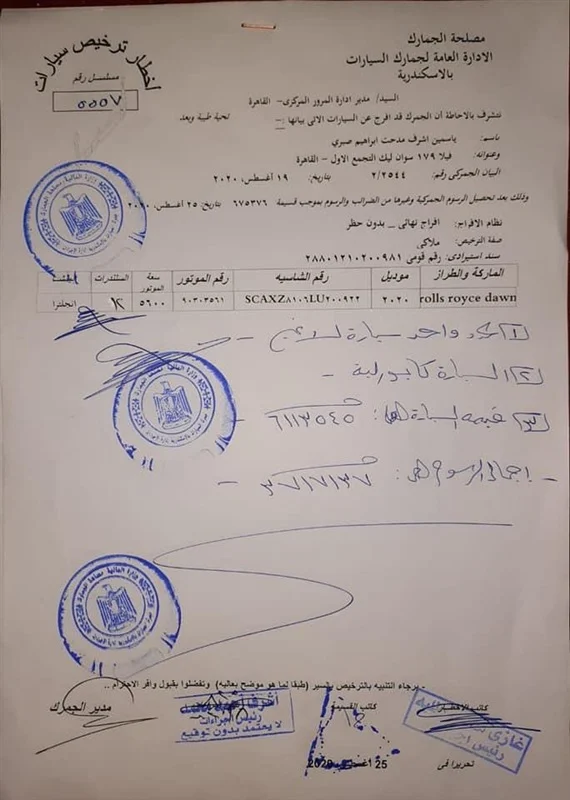 اخطار ترخيص سيارات
مصلحة الجمارك
الادارة العامة لجمارك السيارات
بالاسكندرية
مسلسل رقم
٥٥٥٧
السيد/ مدير ادارة المرور المركزى- القاهرة
تحية طيبة وبعد
نتشرف بالاحاطة أن الجمرك قد افرج عن السيارات الاتى بيانها :-
باسم: ياسمين اشرف مدحت ابراهيم صبري
وعنوانه: فيلا ١٧٩ سوان ليك التجمع الاول - القاهرة
البيان الجمركى رقم: ٢/٢٥٤٤ بتاريخ: ١٩ أغسطس، ٢٠٢٠
وذلك بعد تحصيل الرسوم الجمركية وغيرها من الضرائب والرسوم بموجب قسيمة ٦٧٥٣٧٦ بتاريخ: ٢٥ أغسطس، ٢٠٢٠
نظام الافراج: افراج نهائى _ بدون حظر
صفة الترخيص: ملاكي
سند استيرادى: رقم قومى ٢٨٨٠١٢١٠٢٠٠٩٨١
الماركة والطراز موديل رقم الشاسيه رقم الموتور سعة الموتور السلندرات
rolls royce dawn ٢٠٢٠ SCAXZ٨١٠٦LU٢٠٠٩٢٢ ٩٠٣٠٣٥٦١ ٥٦٠٠ ١٢ انجلترا
١) عدد واحد سيارة لا غير -
٢) السيارة كابورلية -
٣) قيمة السيارة ٦١١٣٥٤٥ -
- إجمالى الرسوم ٣٧١٧١٣٧ -
- برجاء التنبيه بالترخيص بالسير (طبقا لما هو موضح بعاليه) وتفضلوا بقبول وافر الاحترام ..
كاتب الاخطار كاتب القسيمة مدير الجمرك
رئيس اجراءات
لا يعتمد بدون توقيع
تحريرا فى 25 أغسطس، 2020